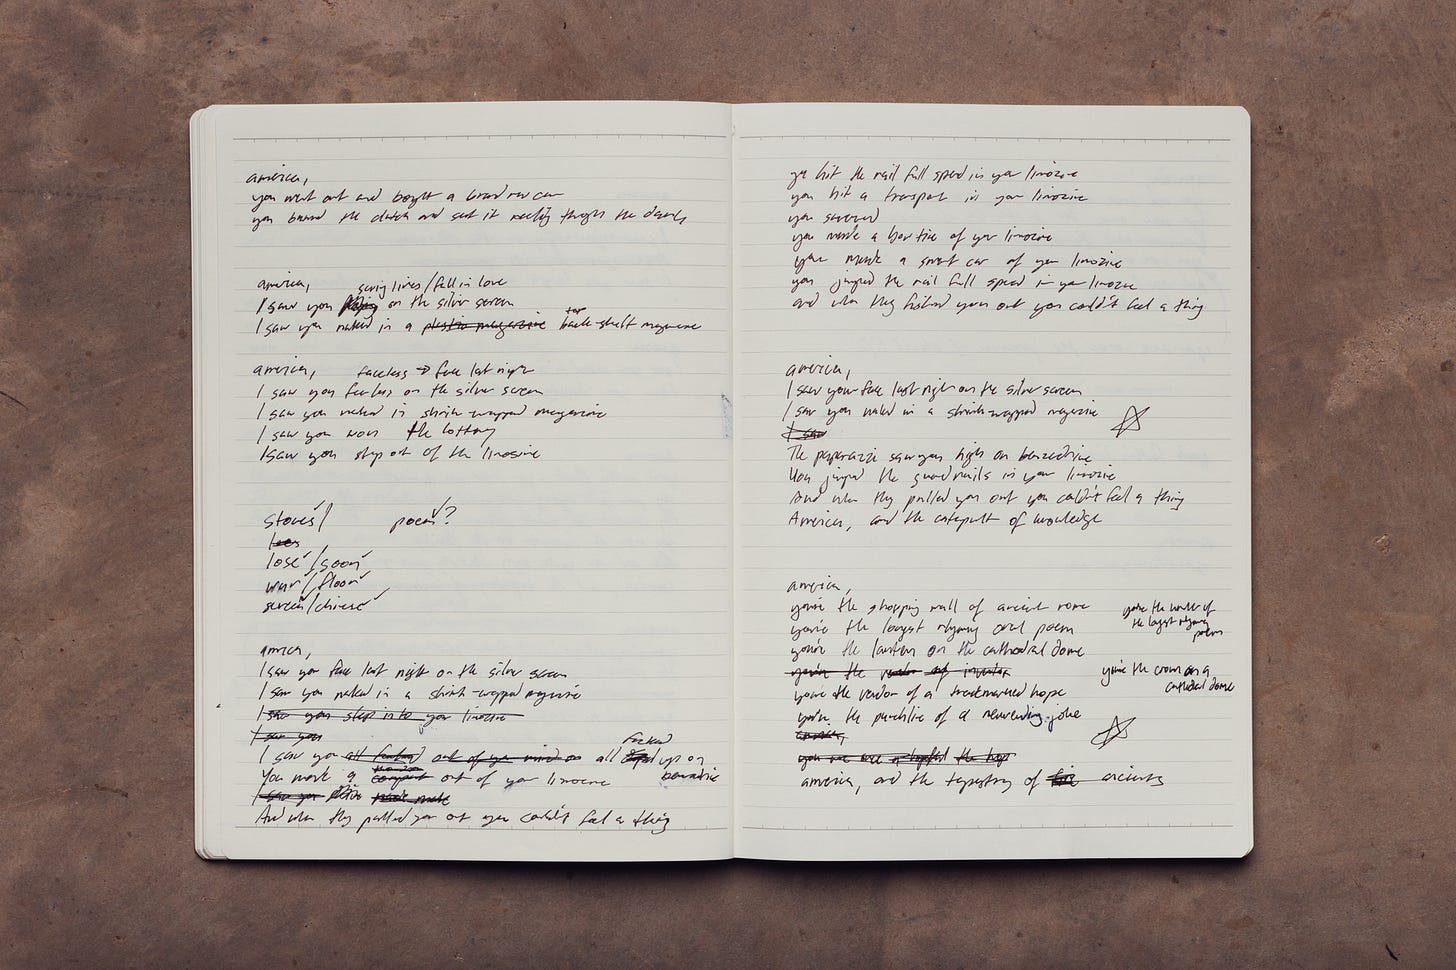 america,
you went out and bought a brand new car
you burned the clutch and set it reeling through the
america,
saving lives/fell in love
I saw you on the silver screen
I saw you naked in a plastic magazine top back-shelf magazine
america, faceless → face last night
I saw you faceless on the silver screen
I saw you naked in shrink-wrapped magazine
I saw you won the lottery
I saw you step out of the limosine
stoves/ poem?
lose/soon
war/floor
screen/chinese
america,
I saw your face last night on the silver screen
I saw you naked in a shrink-wrapped magazine
I saw you step into your limozine
I saw you
fucked
I saw you all fucked out of your mind on all up on
You made a out of your limozine benzedrine
I saw you
And when they pulled you out you couldn't feel a thing
ya hit the rail full speed in your limozine
you hit a transport in your limozine
you swerved
you made a bowtie of your limozine
you made a smart car of your limozine
you jumped the rail full speed in your limozine
and when they fished you out you couldn't feel a thing
america,
I saw your face last night on the silver screen
I saw you naked in a shrink-wrapped magazine
I saw
The paparazzi saw you high on benzedrine
You jumped the guard rails in your limozine
And when they pulled you out you couldn't feel a thing
America, and the catapult of knowledge
america,
you're the shopping mall of ancient rome
you're the longest rhyming oral poem
you're the lantern on the cathedral dome
you're the inventor
you're the vendor of a trademarked hope
you're the punchline of a neverending joke
america, and the tapestry of ancients
you're the writer of
the longest rhyming
poem
you're the crown on a
cathedral dome